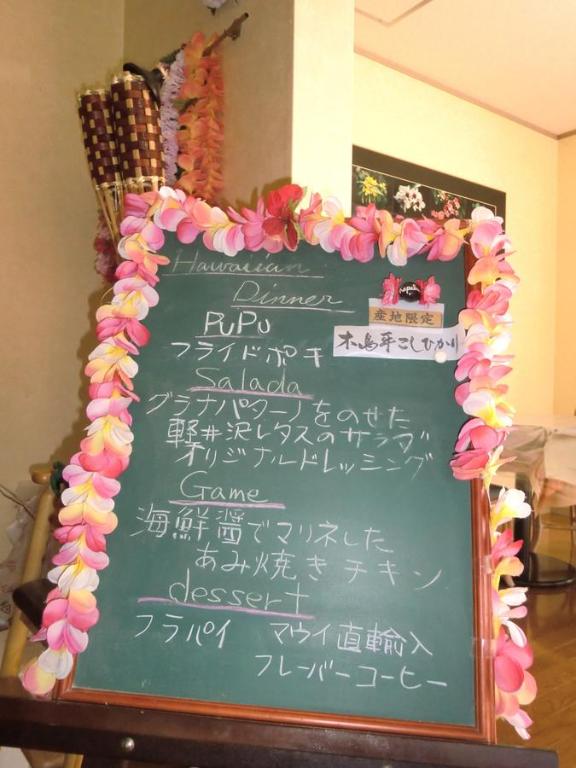 Hawaiian
Dinner
PuPu
産地限定
木島平こしひかり
フライドポキ
Salada
グラナパダーノをのせた
軽井沢レタスのサラダ
オリジナルドレッシング
Game
海鮮醤でマリネした
あみ焼きチキン
dessert
フラパイ マウイ直輸入
フレーバーコーヒー